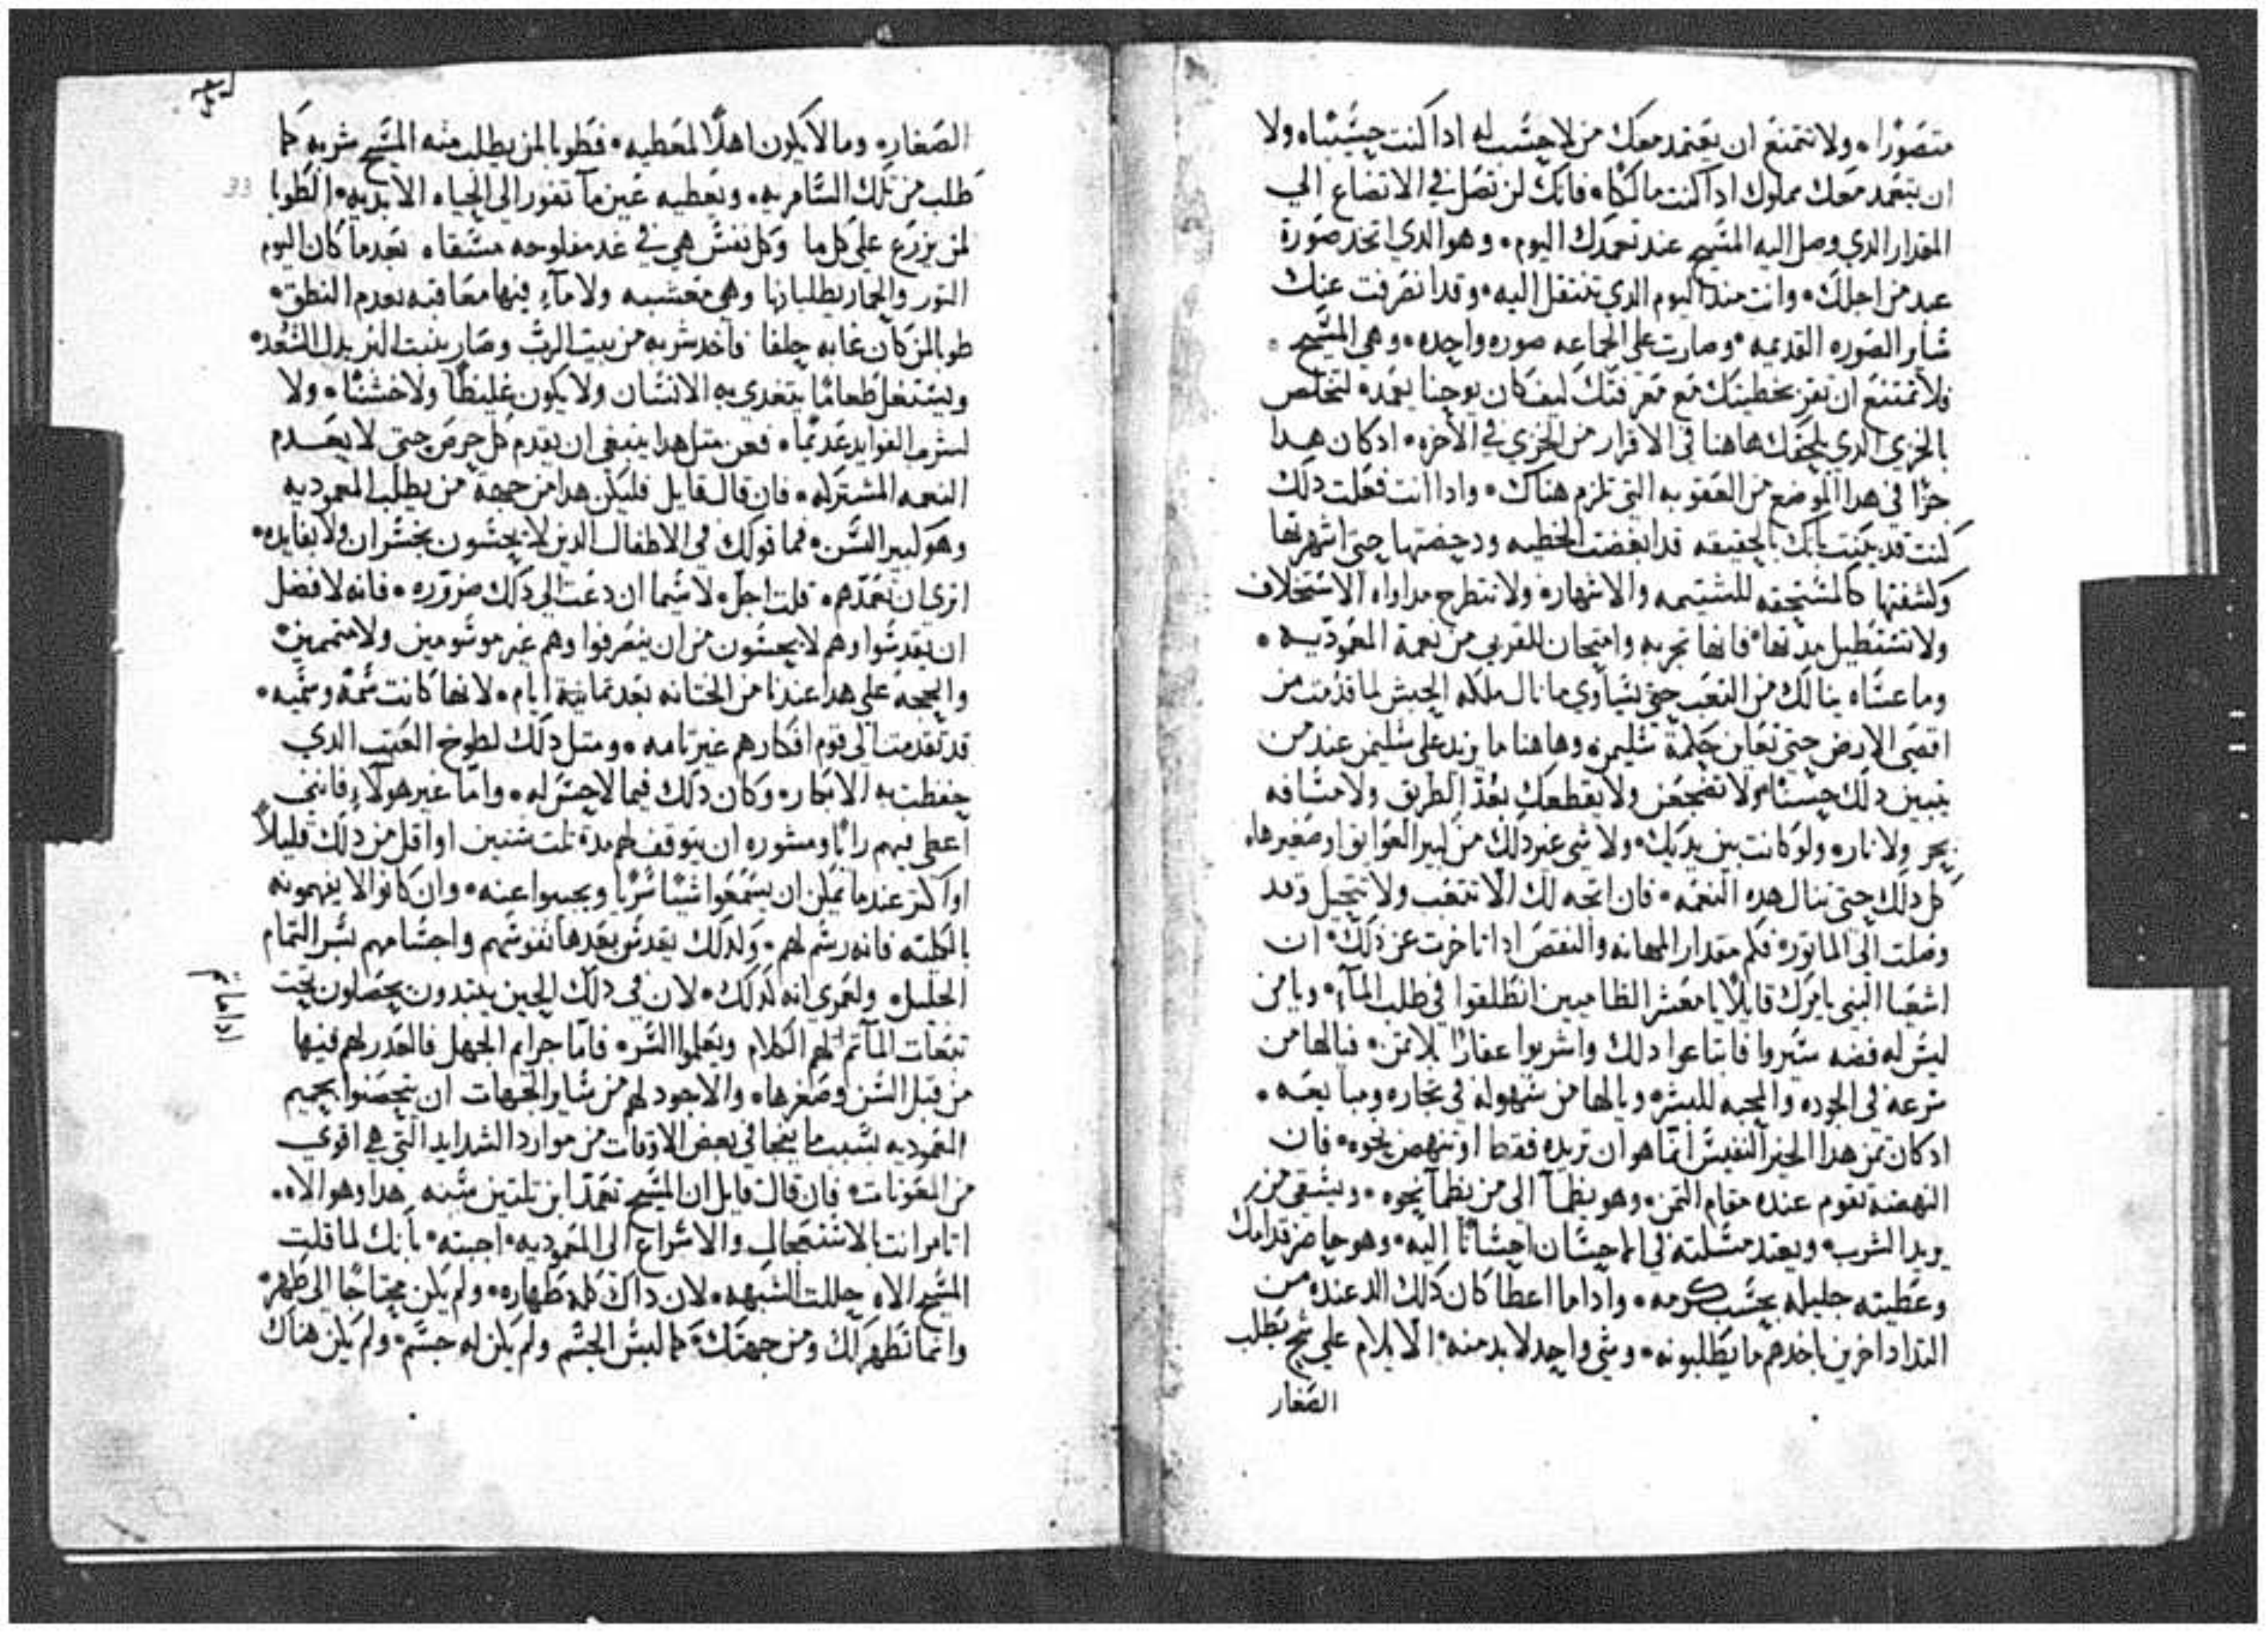 متصورا ولا تتمنع ان يعتمد معك من لا حسب له ادا كنت حسيبا ولا
ان يتعمد معك مملوك ادا كنت مالكا فانك لن تصل في الاتضاع الي
المقدار الدي وصل اليه المسيح عند تعمدك اليوم وهو الدي اتخد صورة
عبد من اجلك وانت مند اليوم الدي تنتقل اليه وقد انصرفت عنك
ساير الصوره القديمه وصارت على الجماعه صوره واحده وهي المسيح
فلا تمتنع ان تقر بخطيتك مع معرفتك كيف كان يوحنا يعمد لتخلص
بالخزي الدي يلحقك هاهنا في الاقرار من الخزي في الاخره ادكان هدا
جزا في هدا الموضع من العقوبه التي تلزم هناك وادا انت فعلت دلك
كنت قد بينت بانك بالحقيقه قد ابغضت الخطيه ودحضتها حتى اشهرتها
وكشفتها كالمستحقه للشتيمه والاشهار ولا تطرح مداواه الاستحلاف
ولا تستطيل مدتها فانها تجربه وامتحان للقربي من نعمة المعموديه
وما عساه ينالك من التعب حتى يساوي ما نال ملكه الحبش لما قدمت من
اقصى الارض حتى تعاين حكمة سليمن وهاهنا ما يزيد على سليمن عند من
يتبين دلك حسنا ولا تضجعن ولا يقطعك بعد الطريق ولا مسافه
بحر ولا نار ولو كانت بين يديك ولا شي غير دلك من كبير العوايق او صغيرها
كل دلك حتى تنال هده النعمه فان اتجه لك الا تتعب ولا تتحيل وقد
وصلت الى الماتور فكم مقدار المهانه والنقص ادا تاخرت عن دلك ان
اشعيا النبي يامرك قايلا يا معشر الظاميين انطلقوا في طلب المآء ويا من
ليس له فضه سيروا فابتاعوا دلك واشربوا عقارا بلا تمن فيالها من
سرعه في الجوده والمحبه للبشر ويالها من سهوله في تجاره ومبايعه
ادكان تمن هدا الخير النفيس انما هو ان تريده فقط او تنهض نحوه فان
النهضة تقوم عنده مقام التمن وهو يظمآ الى من يظمآ نحوه ويسقي من
يريد الشرب ويعتد مسلته في الاحسان احسانا اليه وهو حاضر قدامك
وعطيته جليله بحسب كرمه وادا ما اعطا كان دلك الد عنده من
التداد اخرين باخدهم ما يطلبونه وشي واحد لا بد منه الا يلام على شح بطلب
الصغار
الصغار وما لا يكون اهلا لمعطيه فطوبا لمن يطلب منه المسيح شربه كما
طلب من تلك السامريه ويعطيه عين مآ تفور الى الحياه الابديه الطوبا
لمن يزرع على كل ما وكل نفس هي في غد مفلوحه مسقاه بعد ما كان اليوم
التور والحمار يطلبانها وهي معشبه ولا مآء فيها معاقبه بعدم النطق
طوبا لمن كان غابه حلفا فاخد شربه من بيت الرب وصار ينبت البر بدل السعد
ويستغل طعاما يتغدي به الانسان ولا يكون غليظا ولا خشنا ولا
لشرف الفوايد عديما فعن متل هدا ينبغي ان يقدم كل حرص حتى لا يعدم
النعمه المشتركه فان قال قايل فليكن هدا من جهة من يطلب المعموديه
وهو كبير السن فما قولك في الاطفال الدين لا يحسون بخسران ولا بفايده
اترى ان نعمدهم قلت اجل لا سيما ان دعت الى دلك ضروره فانه لافضل
ان يقدسوا وهم لا يحسون من ان ينصرفوا وهم غير موسومين ولا متممين
والحجه على هدا عندنا من الختانه بعد تمانية ايام لانها كانت سمة وسميه
قد تقدمت الى قوم افكارهم غير تامه ومتل دلك لطوخ العتب الدي
حفظت به الابكار وكان دلك فيما لا حس له واما غير هولآء فانني
اعطي فيهم رايا ومشوره ان يتوقف لهم مدة تلت سنين او اقل من دلك قليلا
او اكتر عند ما يمكن ان يسمعوا شيا سريا ويجيبوا عنه وان كانوا لا يفهمونه
بالكليه فانه رسم لهم ولدلك يقدسو بعدها نفوسهم واجسامهم بسر التمام
الجليل ولعمري انه كدلك لان في دلك الحين يبتدون يحصلون تحت
تبعات المآتم لهم الكلام ويعلموا السر فاما جرايم الجهل فالعدر لهم فيها
من قبل السن وصغرها والاجود لهم من ساير الجهات ان يتحصنوا بحميم
المعموديه بسبب ما يفجا في بعض الاوقات من موارد الشدايد التي هي اقوى
من المعونات فان قال قايل ان المسيح تعمد ابن تلتين سنه هدا وهو الاه
اتامر انت بالاستعجال والاسراع الى المعموديه اجبته بانك لما قلت
المسيح الاه حللت الشبهه لان داك كله طهاره ولم يكن محتاجا الى طهر
وانما تطهر لك ومن جهتك كما لبس الجسم ولم يكن له جسم ولم يكن هناك
33